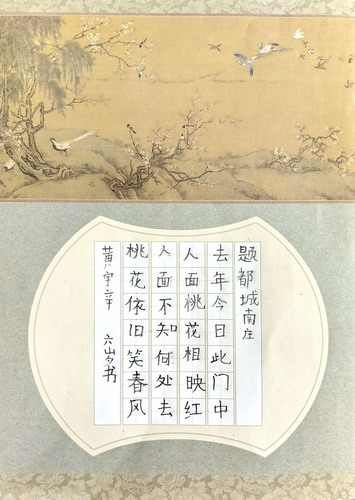 题都城南庄
去年今日此门中
人面桃花相映红
人面不知何处去
桃花依旧笑春风
黄宇辛 六岁书